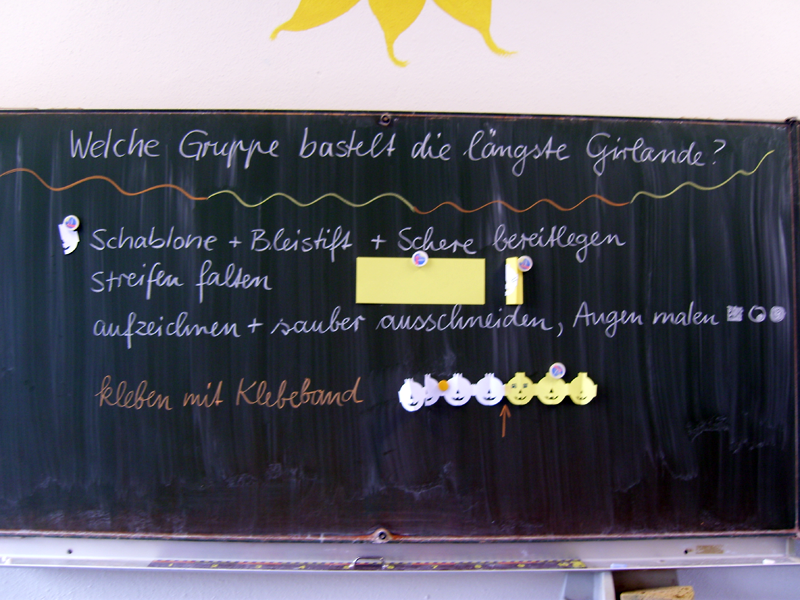 Welche Gruppe bastelt die längste Girlande?
Schablone + Bleistift + Schere bereitlegen
Streifen falten
aufzeichnen + sauber ausschneiden, Augen malen
kleben mit Klebeband